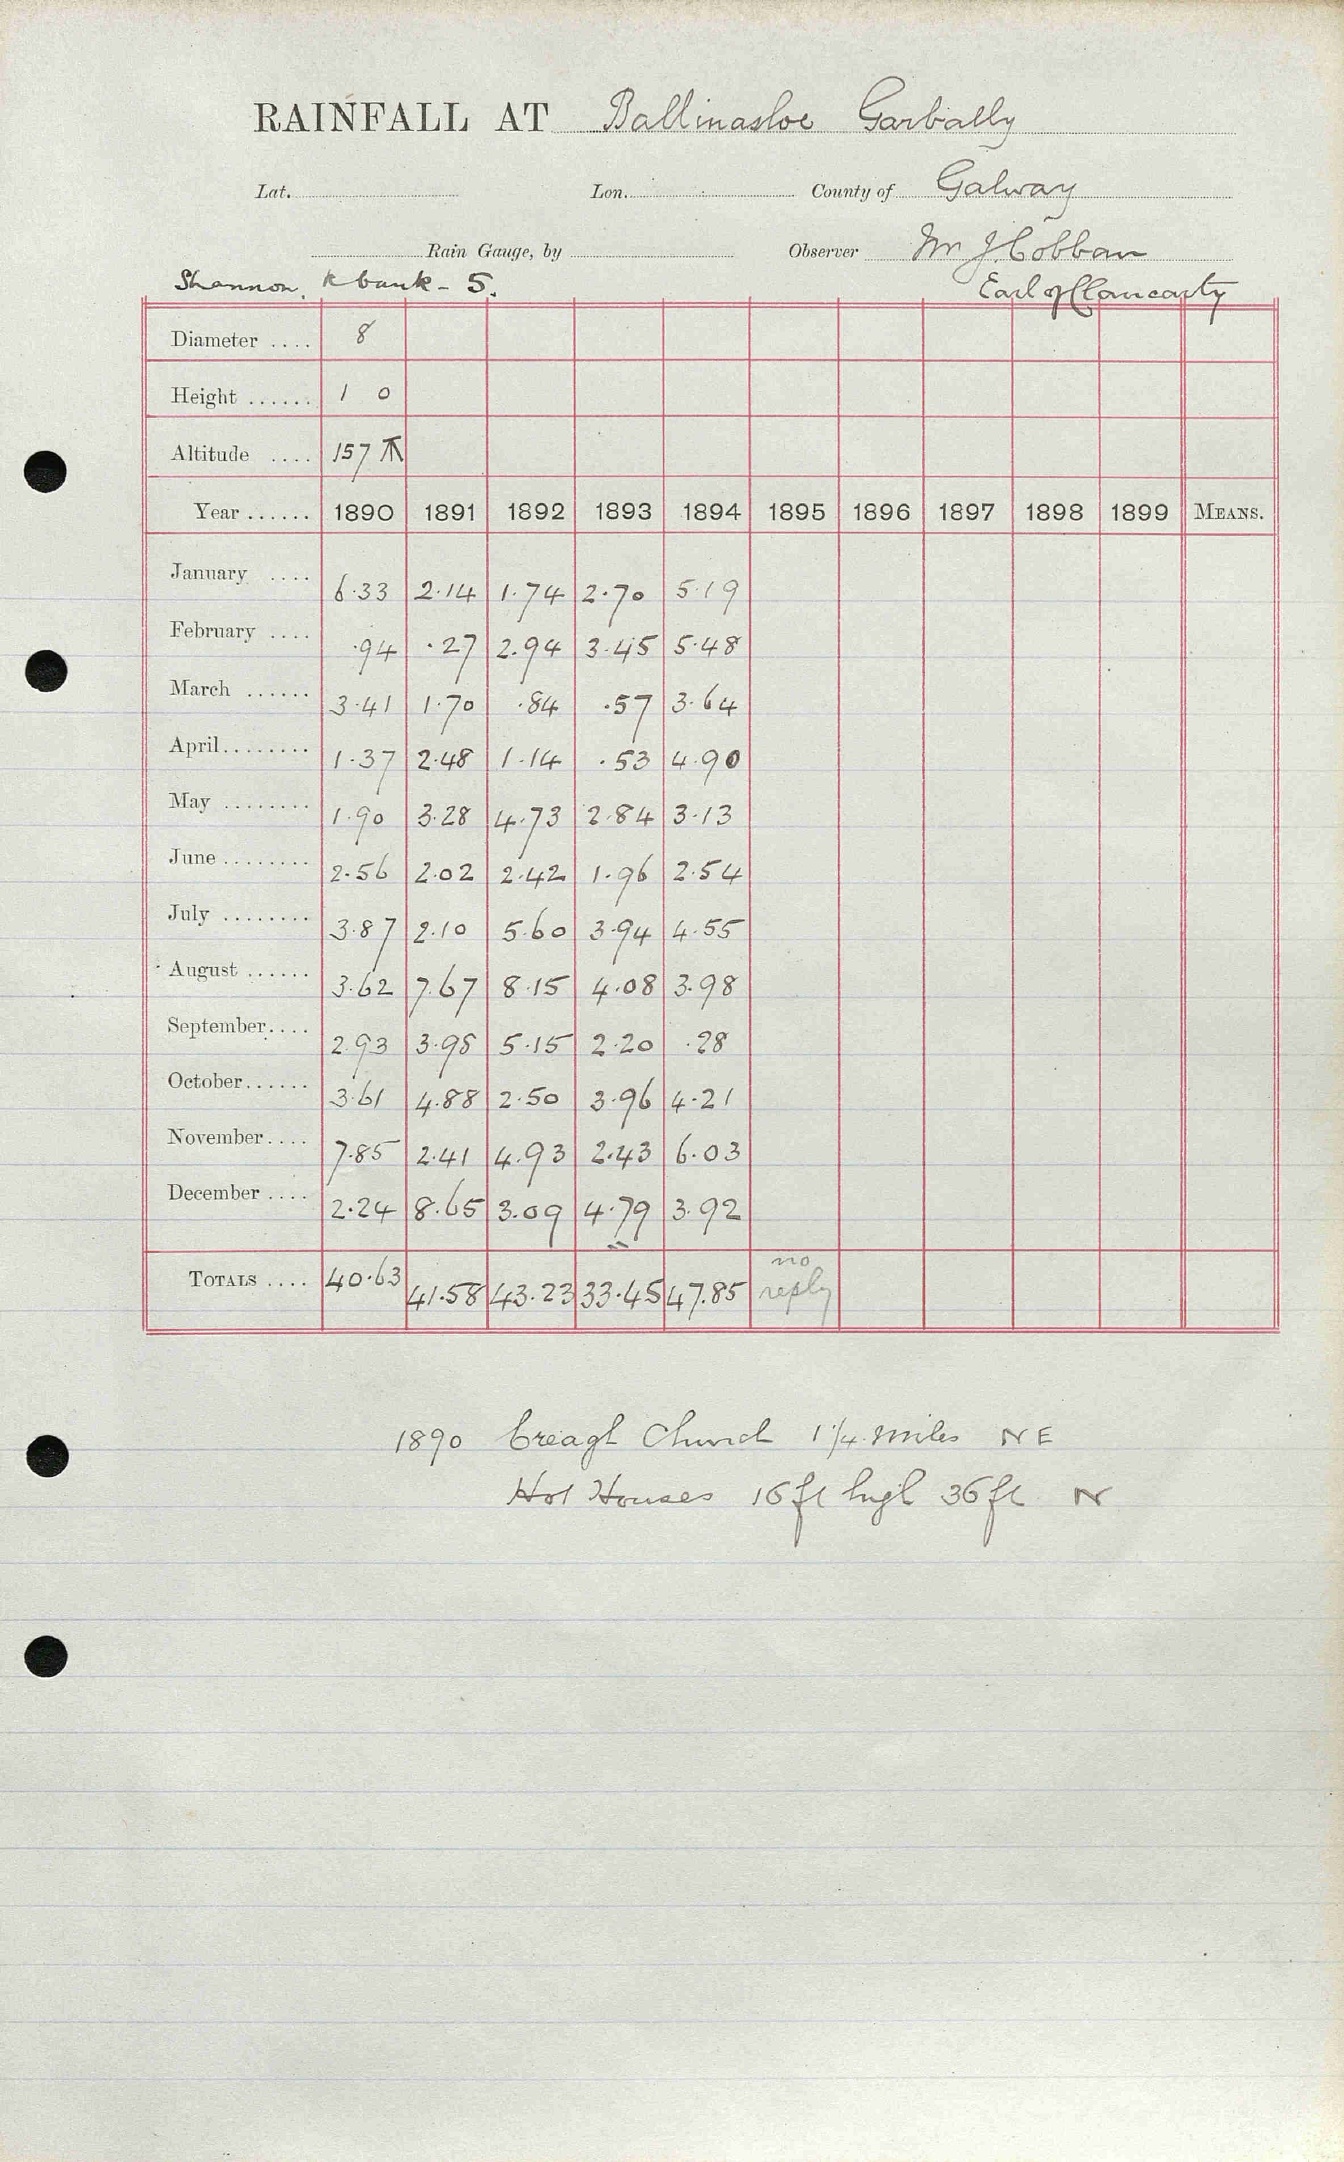 RAINFALL AT Ballinasloe Garbally
Lat. Lon. County of Galway
Rain Gauge, by Observer Mr J. Cobban
Shannon, R bank - 5. Earl of Clancarty
Diameter .... 8
Height ...... 1 0
Altitude .... 157
Year ...... 1890 1891 1892 1893 1894 1895 1896 1897 1898 1899 MEANS.
January .... 6.33 2.14 1.74 2.70 5.19
February .... .94 .27 2.94 3.45 5.48
March ...... 3.41 1.70 .84 .57 3.64
April ........ 1.37 2.48 1.14 .53 4.90
May ........ 1.90 3.28 4.73 2.84 3.13
June ........ 2.56 2.02 2.42 1.96 2.54
July ........ 3.87 2.10 5.60 3.94 4.55
August ...... 3.62 7.67 8.15 4.08 3.98
September.... 2.93 3.98 5.15 2.20 .28
October...... 3.61 4.88 2.50 3.96 4.21
November.... 7.85 2.41 4.93 2.43 6.03
December .... 2.24 8.65 3.09 4.79 3.92
TOTALS .... 40.63 41.58 43.23 33.45 47.85 no reply
1890 Creagh Church 1 1/4 miles NE
Hot Houses 16 ft high 36 ft N